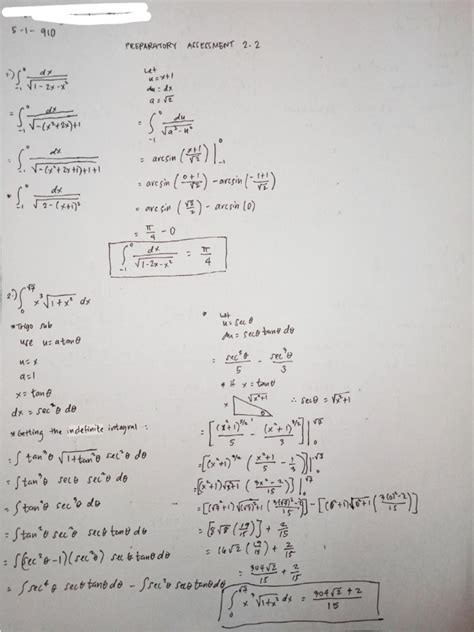 5-1-910
PREPARATORY ASSESSMENT 2.2
1.) ∫₋₁⁰ dx/√(1-2x-x²)
= ∫₋₁⁰ dx/√(-(x²+2x)+1)
= ∫₋₁⁰ dx/√(-(x²+2x+1)+1+1)
* ∫₋₁⁰ dx/√(2-(x+1)²)
Let
u = x+1
du = dx
a = √2
= ∫₋₁⁰ du/√(a²-u²)
= arcsin ((x+1)/√2) |₋₁⁰
= arcsin ((0+1)/√2) - arcsin ((-1+1)/√2)
= arcsin (√2/2) - arcsin (0)
= π/4 - 0
∫₋₁⁰ dx/√(1-2x-x²) = π/4
2.) ∫₀^√7 x³√(1+x²) dx
* Trigo sub
use u = a tanθ
u = x
a = 1
x = tanθ
dx = sec²θ dθ
* Getting the indefinite integral :
= ∫ tan³θ √(1+tan²θ) sec²θ dθ
= ∫ tan³θ secθ sec²θ dθ
= ∫ tan³θ sec³θ dθ
= ∫ tan²θ sec²θ secθ tanθ dθ
= ∫ (sec²θ-1)(sec²θ) secθ tanθ dθ
= ∫ sec⁴θ secθ tanθ dθ - ∫ sec²θ secθ tanθ dθ
* Let
u = secθ
du = secθ tanθ dθ
= sec⁵θ/5 - sec³θ/3
* if x = tanθ
x √(x²+1) θ
∴ secθ = √(x²+1)
= [(x²+1)^(5/2)/5 - (x²+1)^(3/2)/3] |₀^√7
= [(x²+1)^(3/2) ((x²+1)/5 - 1/3)] |₀^√7
= [(x²+1)√(x²+1) ((3x²-2)/15)] |₀^√7
= [8√8 (19/15)] + 2/15
= 16√2 (19/15) + 2/15
= 304√2/15 + 2/15
∫₀^√7 x³√(1+x²) dx = (304√2+2)/15